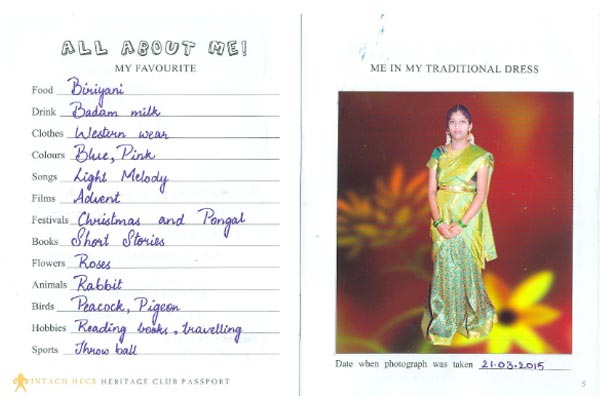 ALL ABOUT ME!
MY FAVOURITE
Food Biriyani
Drink Badam milk
Clothes Western wear
Colours Blue, Pink
Songs Light Melody
Films Advent
Festivals Christmas and Pongal
Books Short Stories
Flowers Roses
Animals Rabbit
Birds Peacock, Pigeon
Hobbies Reading books, travelling
Sports Throw ball
INTACH HECS HERITAGE CLUB PASSPORT
ME IN MY TRADITIONAL DRESS
Date when photograph was taken 21.03.2015
5